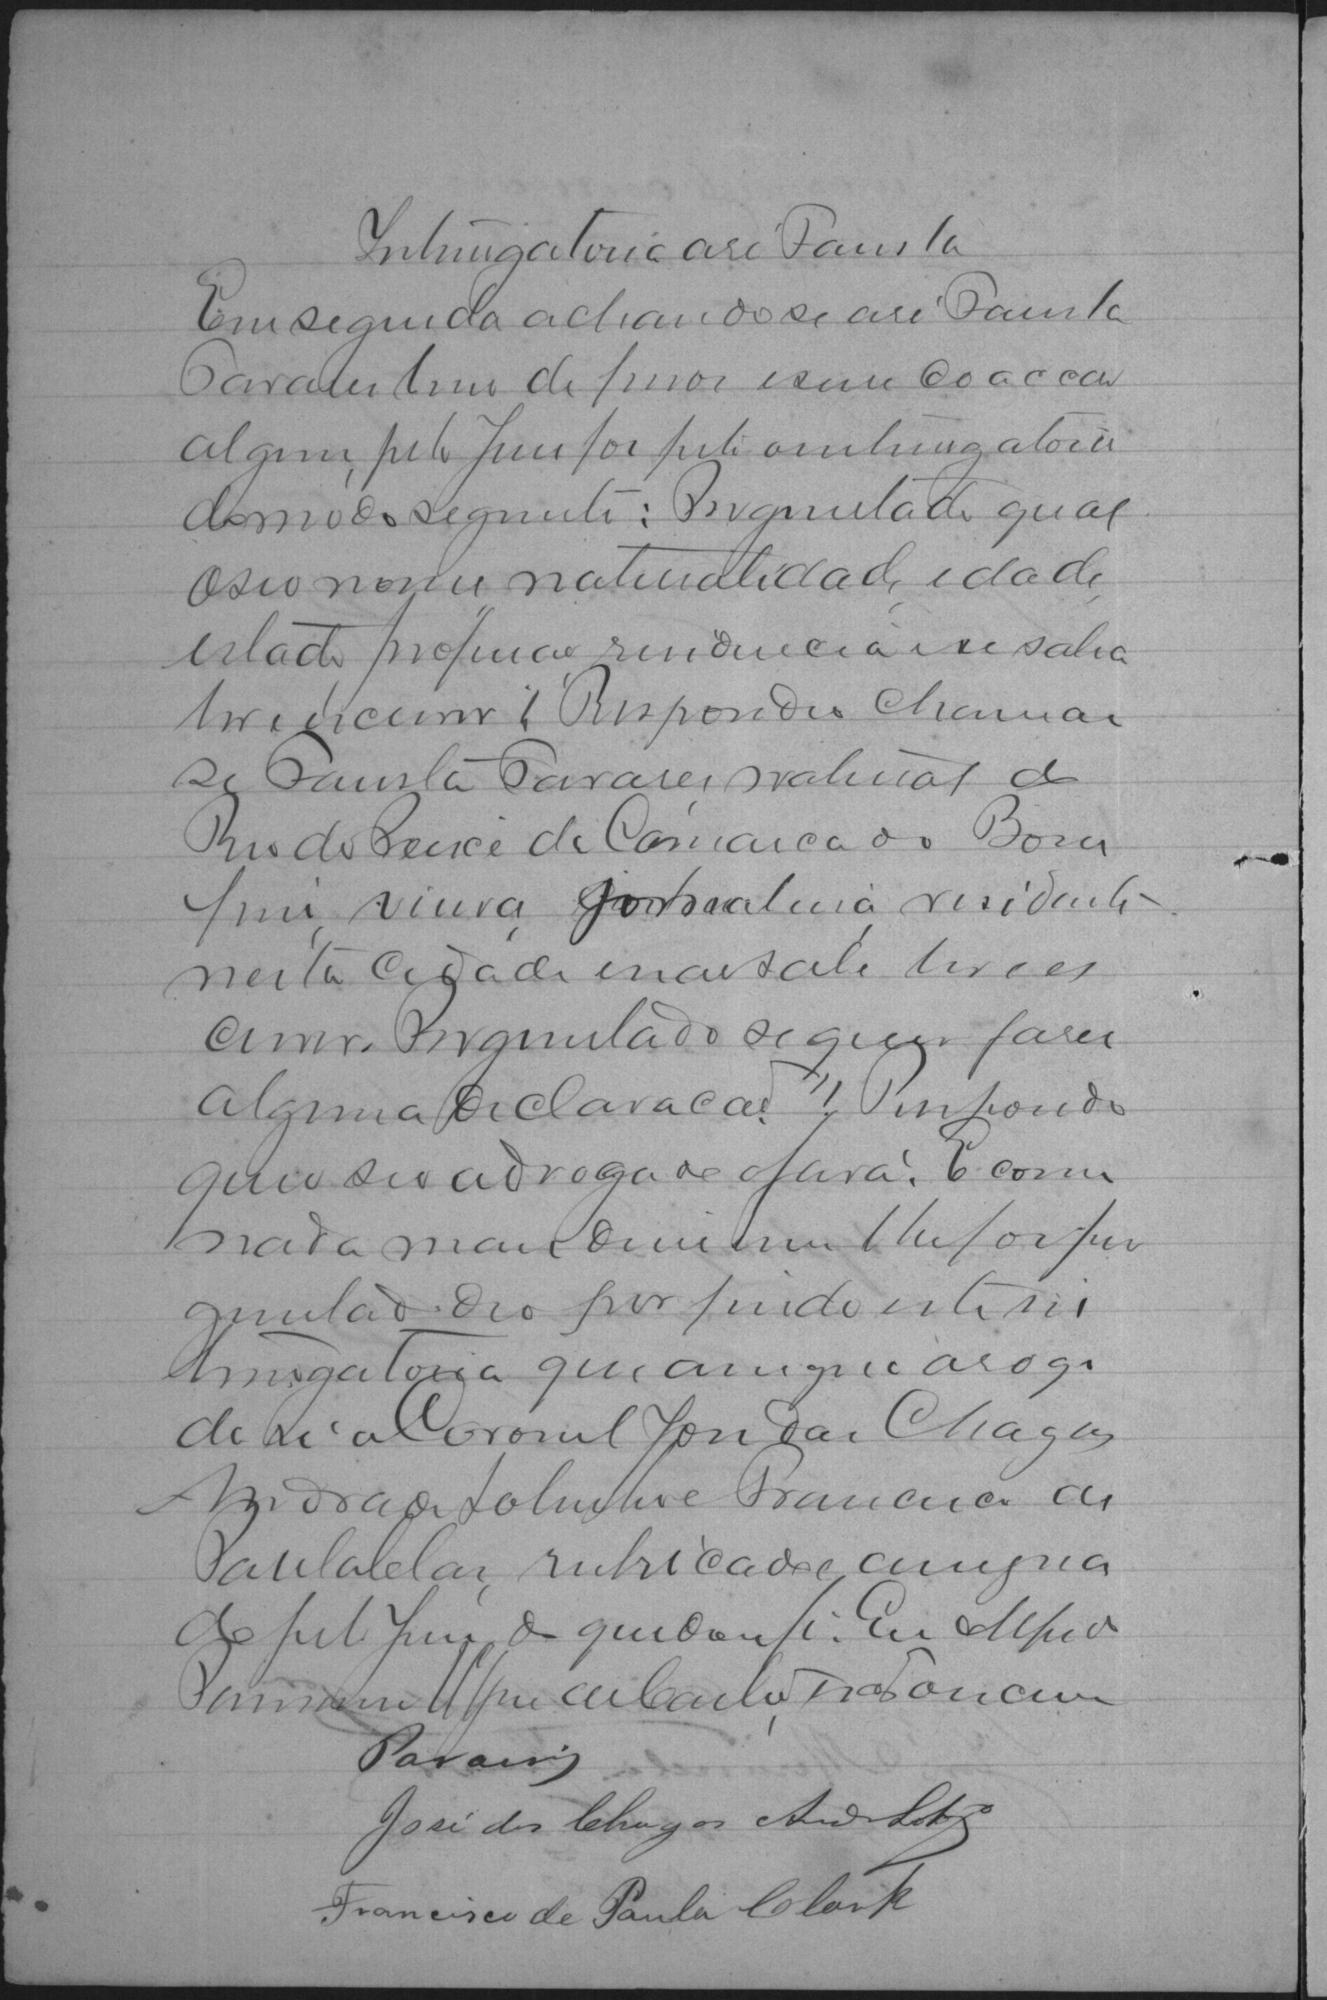 Interrogatorio a ré Fausta
Em seguida achando se a ré Fausta
Tavares livre de ferros e sem coaccão
alguma, pelo Juiz foi feito o interrogatorio
do modo seguinte: Perguntado qual
o seo nome, naturalidade, idade,
estado, profissão residencia e se sabia
ler e escrever? Respondeo chamar
se Fausta Tavares, natural do
Rio do Peixe da Comarca do Bom
fim, viuva, jornaleira, residente
nesta Cidade e não sabe ler e es
crever. Perguntado se quer faser
alguma declaração? Respondeo
que o seo advogado o fará. E como
nada mais disse nem lhe foi per
guntado deo por findo este in
terrogatorio que assigna a rogo
de si o Coronel José das Chagas
Andrade Sobrinho e Francisco de
Paula Clark, rubricado e assigna
do pelo Juiz do que dou fé. Eu Alfredo
escrivão
Paranhos
José das Chagas Andr. Sobrº
Francisco de Paula Clark